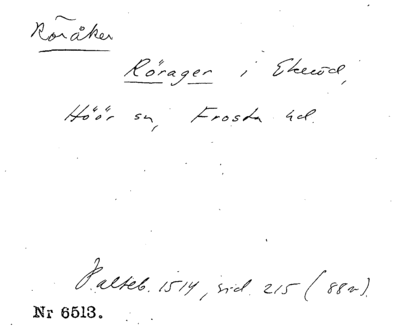 Röråker
Rörager i Ekeröd,
Höör sn, Frosta hd.
Palteb. 1514, sid. 215 (88r).
Nr 6513.